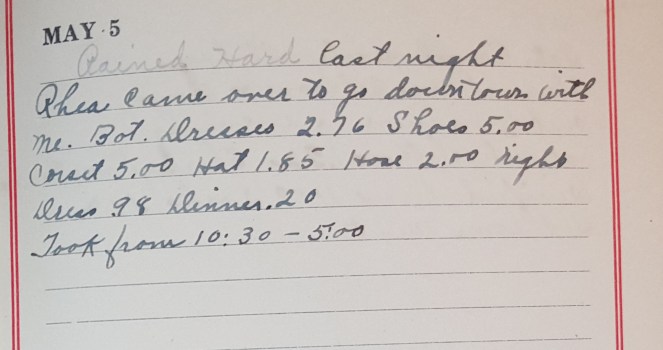 MAY 5
Rained Hard last night
Rhea came over to go downtown with
me. Bot. Dresses 2.76 Shoes 5.00
Corset 5.00 Hat 1.85 Hose 2.00 night
Dress .98 Dinner .20
Took from 10:30 - 5:00